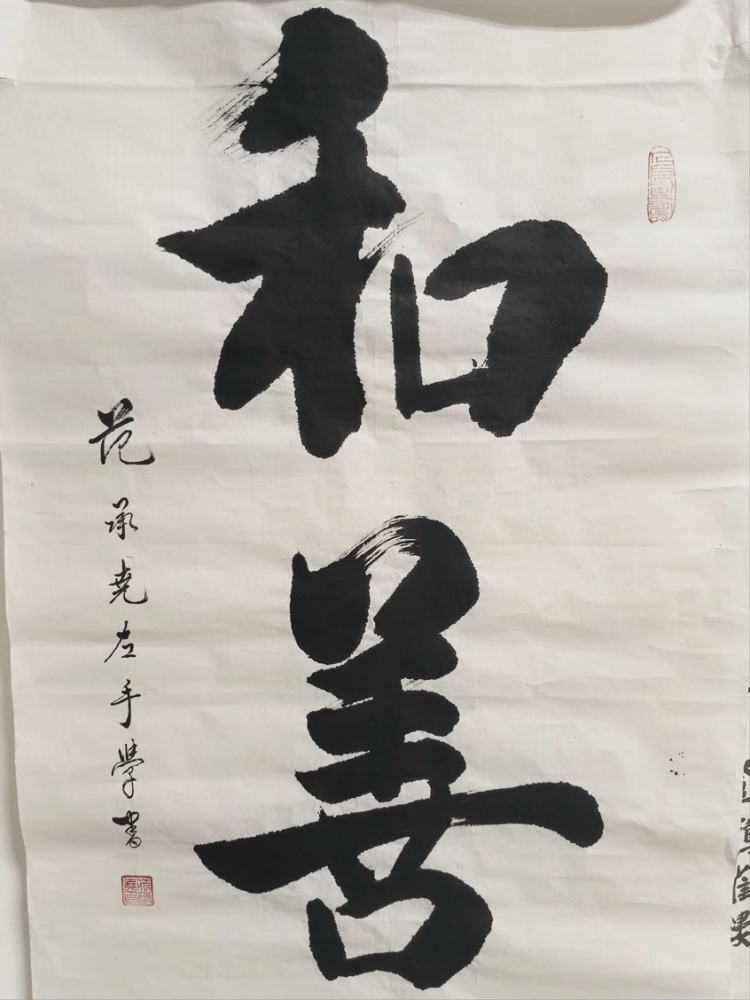 和善
范承尧左手學书